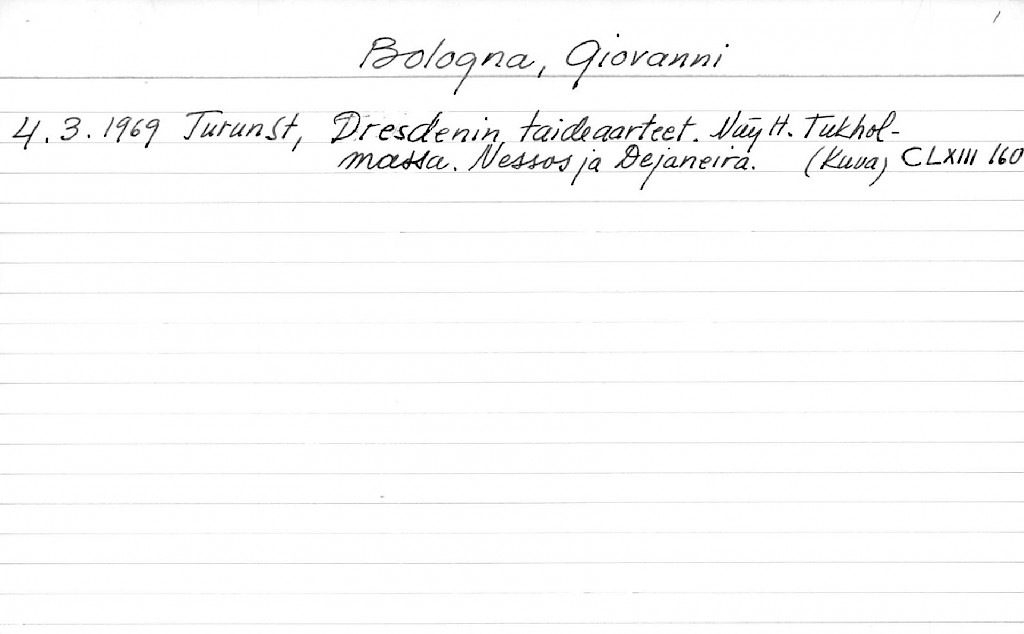 Bologna, Giovanni
4.3.1969 TurunSt, Dresdenin taideaarteet. Näytt. Tukhol-
massa. Nessos ja Dejaneira. (Kuva) CLXIII 160